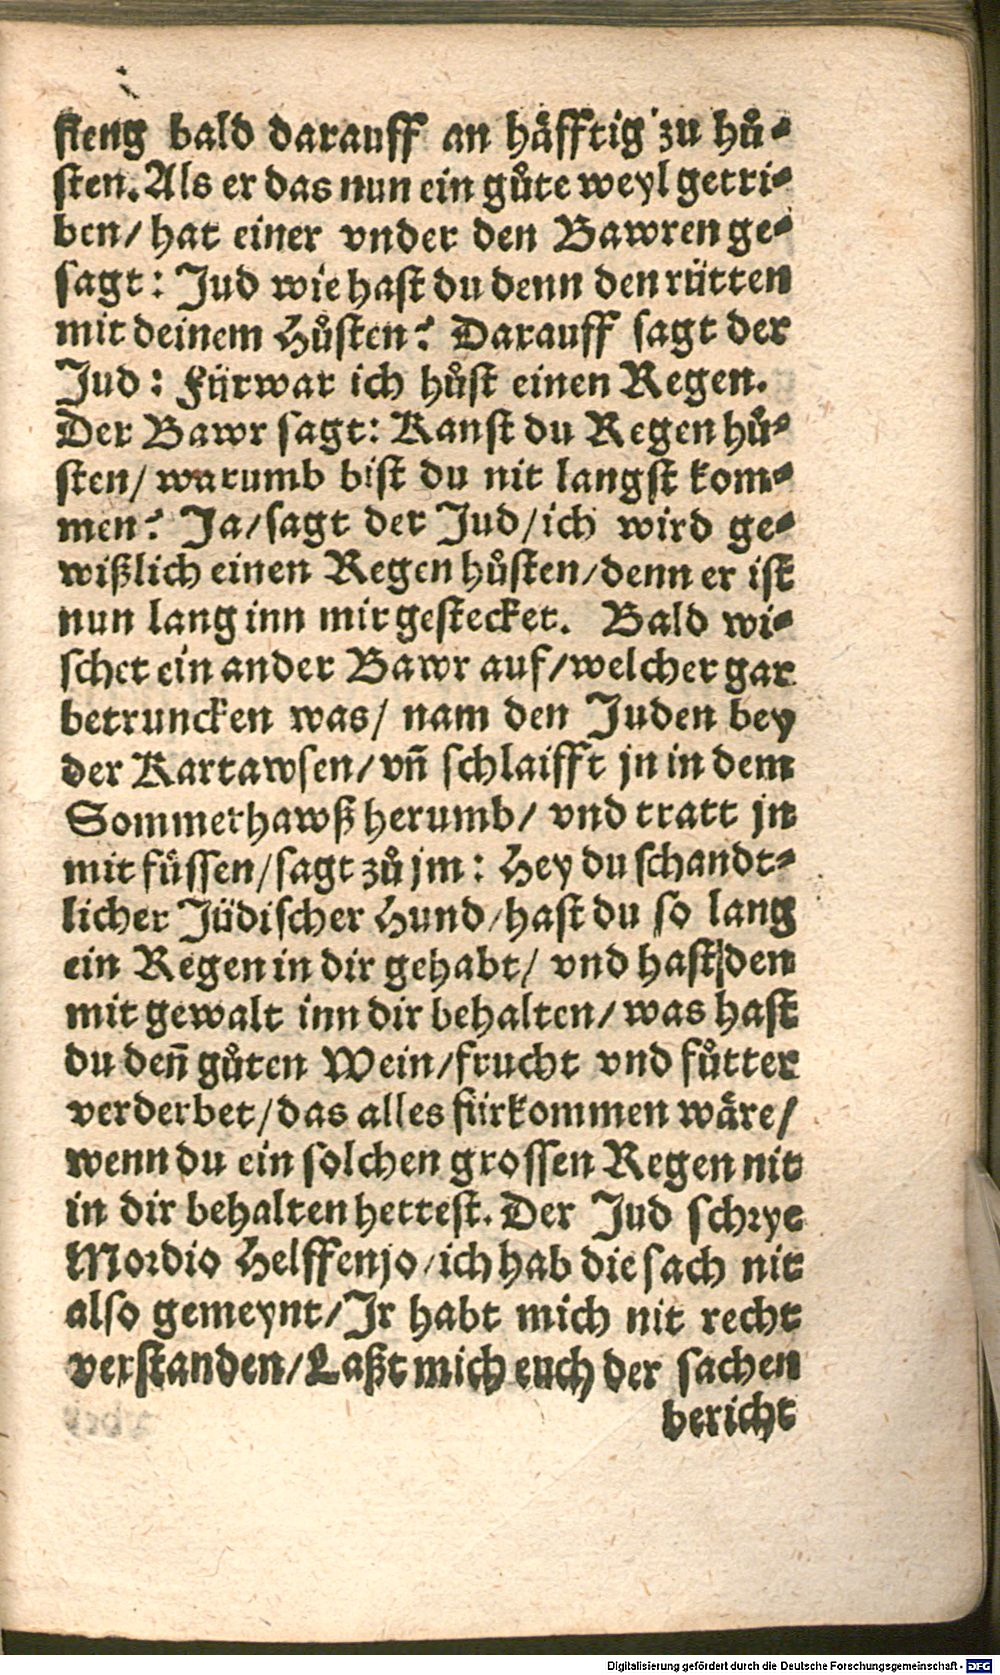 fieng bald darauff an häfftig zu hů-
sten. Als er das nun ein gůte weyl getri-
ben/ hat einer vnder den Bawren ge-
sagt: Jud wie hast du denn den rütten
mit deinem Hůsten? Darauff sagt der
Jud: Fürwar ich hůst einen Regen.
Der Bawr sagt: Kanst du Regen hů-
sten/ warumb bist du nit langst kom-
men? Ja/ sagt der Jud/ ich wird ge-
wißlich einen Regen hůsten/ denn er ist
nun lang inn mir gestecket. Bald wi-
schet ein ander Bawr auf/ welcher gar
betruncken was/ nam den Juden bey
der Kartawsen/ vn̄ schlaifft jn in dem
Sommerhawß herumb/ vnd tratt jn
mit füssen/ sagt zů jm: Hey du schandt-
licher Jüdischer Hund/ hast du so lang
ein Regen in dir gehabt/ vnd hast den
mit gewalt inn dir behalten/ was hast
du den̄ gůten Wein/ frucht vnd fůtter
verderbet/ das alles fürkommen wäre/
wenn du ein solchen grossen Regen nit
in dir behalten hettest. Der Jud schrye
Mordio Helffenjo/ ich hab die sach nit
also gemeynt/ Jr habt mich nit recht
verstanden/ Laßt mich euch der sachen
bericht
Digitalisierung gefördert durch die Deutsche Forschungsgemeinschaft - DFG